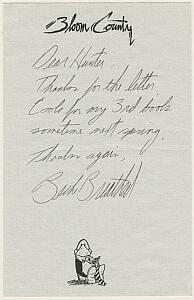 Bloom County
Dear Hunter.
Thanks for the letter.
Look for my 3rd book
sometime next spring.
Thanks again,
Berke Breathed